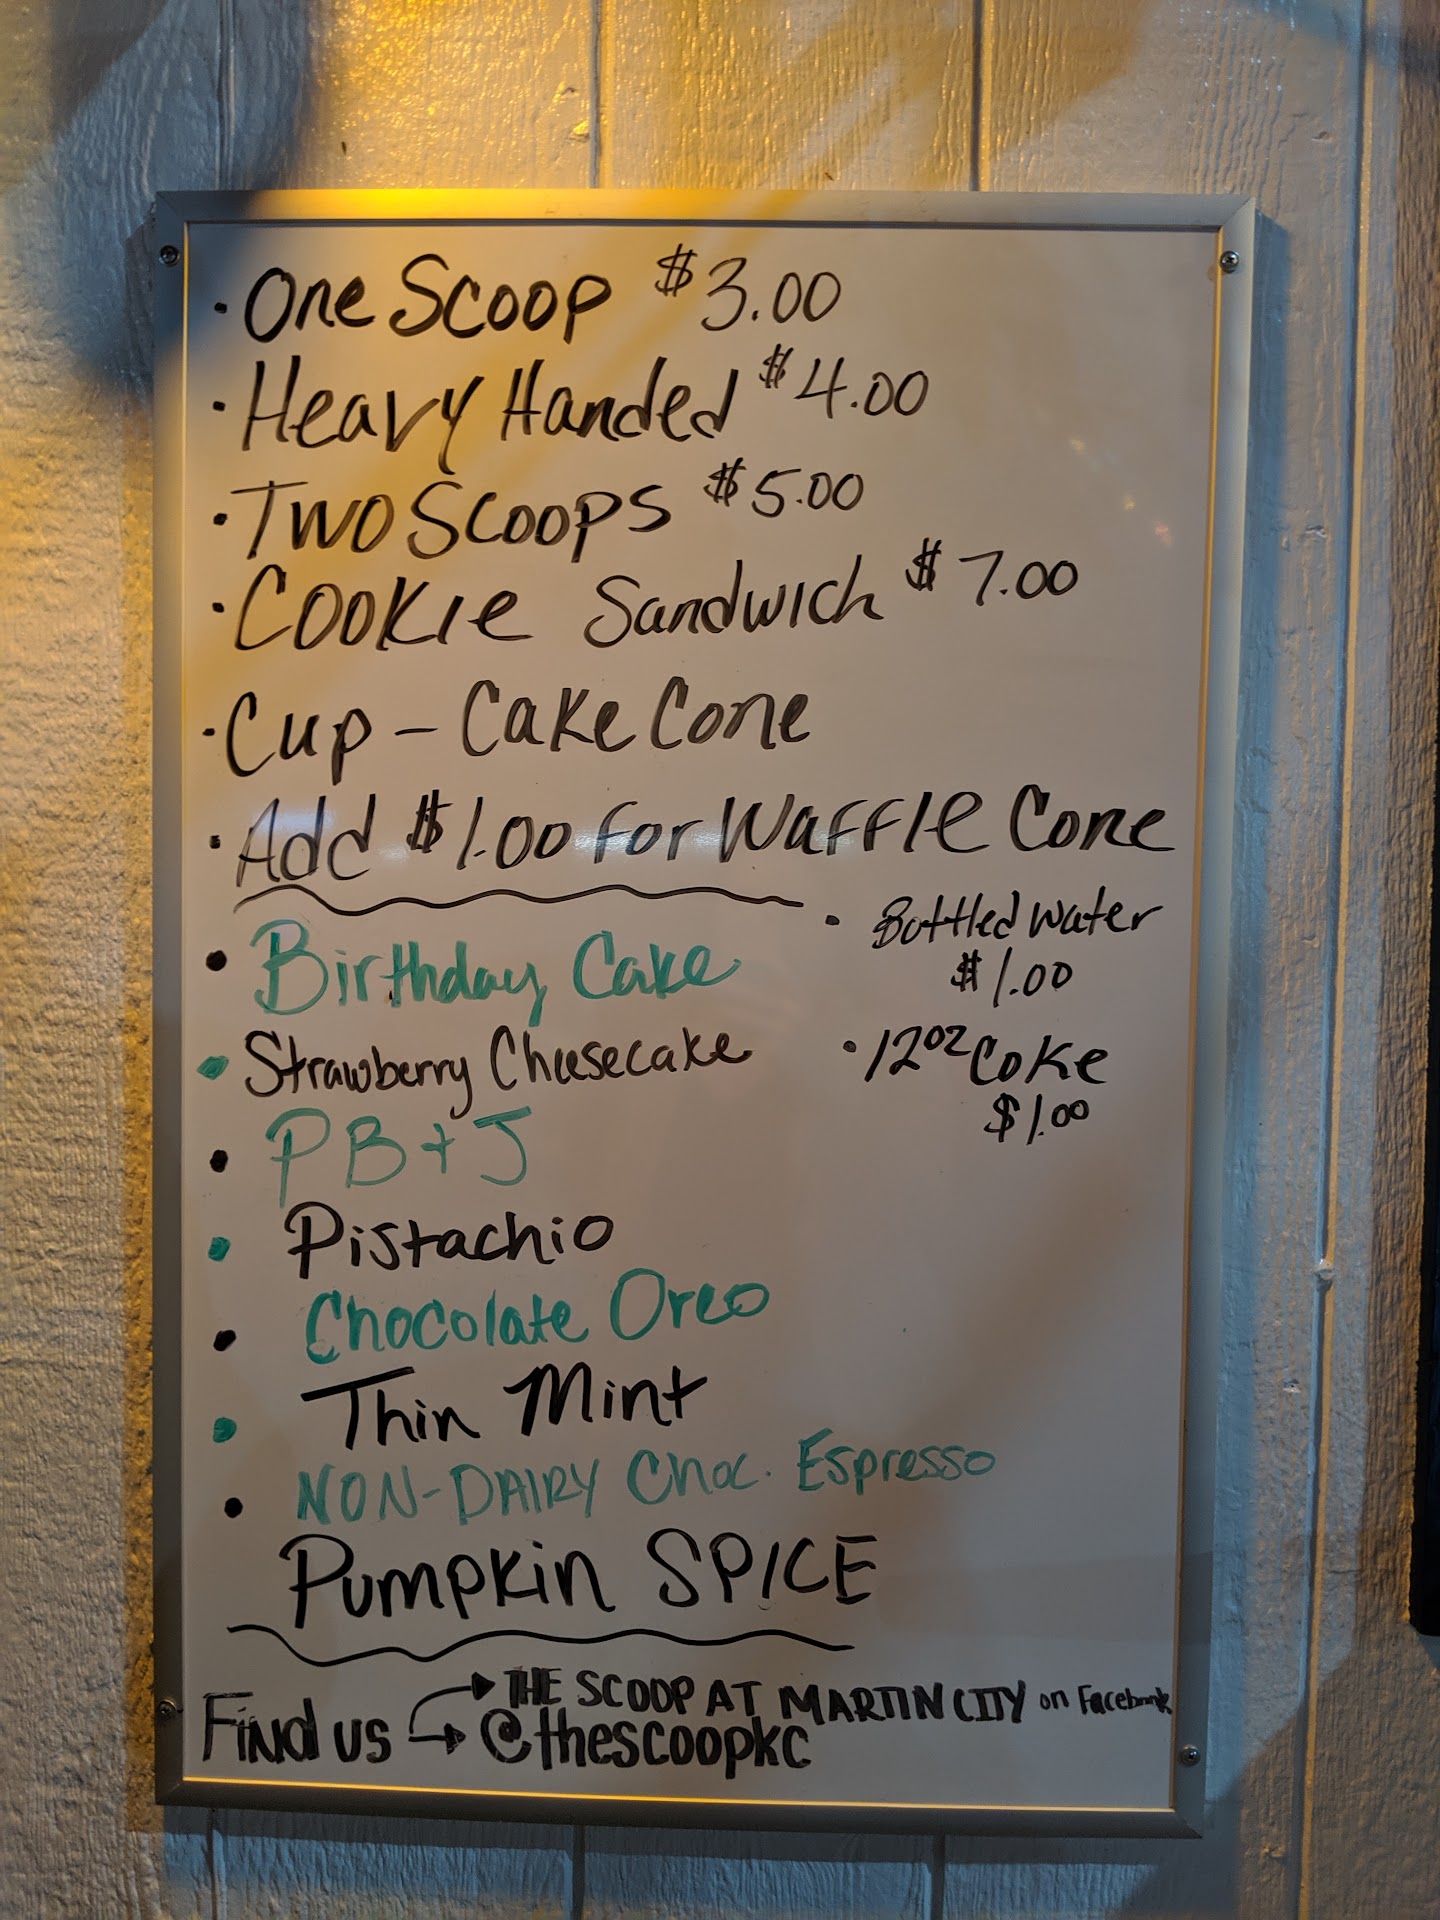 · One Scoop $3.00
· Heavy Handed $4.00
· Two Scoops $5.00
· Cookie Sandwich $7.00
· Cup - Cake Cone
· Add $1.00 for Waffle Cone
· Bottled Water
$1.00
· 12oz Coke
$1.00
• Birthday Cake
• Strawberry Cheesecake
• PB+J
• Pistachio
• Chocolate Oreo
• Thin Mint
• NON-DAIRY Choc. Espresso
Pumpkin SPICE
Find us → THE SCOOP AT MARTIN CITY on Facebook
→ @thescoopkc